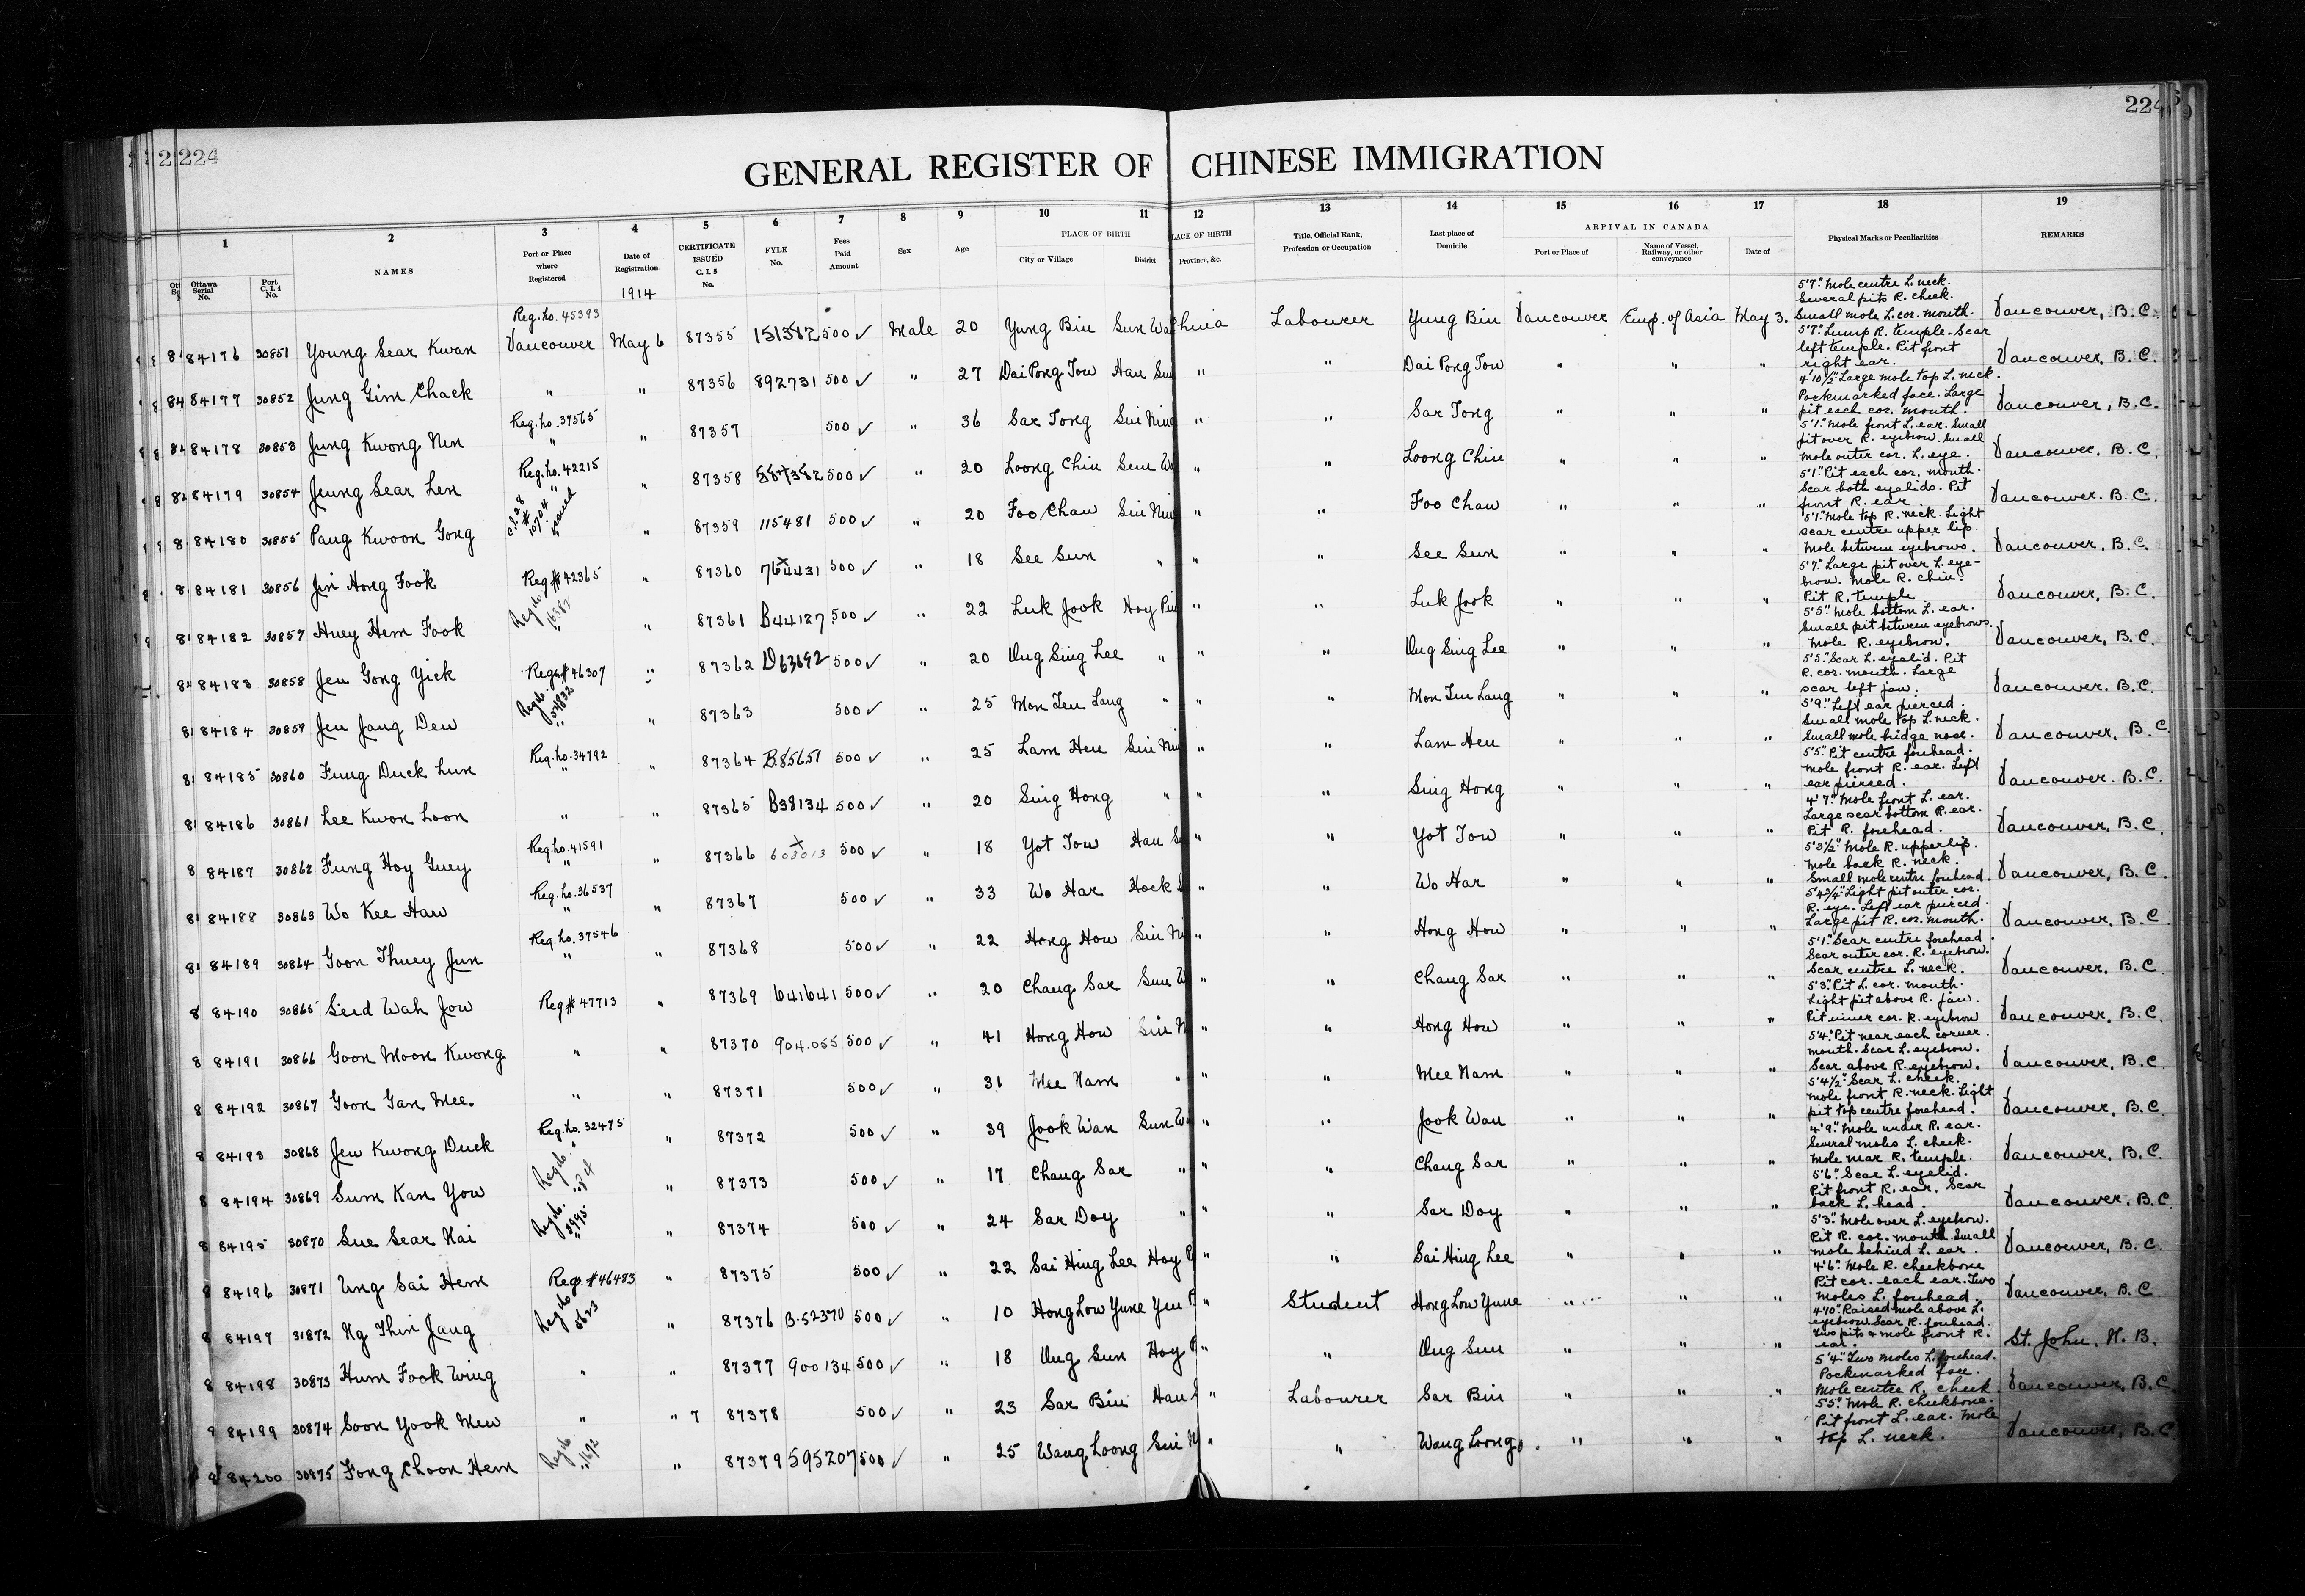 224
224
GENERAL REGISTER OF CHINESE IMMIGRATION
1 2 3 4 5 6 7 8 9 10 11 12 13 14 15 16 17 18 19
Ottawa Serial No. Port C.I.4 No. NAMES Port or Place where Registered Date of Registration CERTIFICATE ISSUED C.I.5 No. FYLE No. Fees Paid Amount Sex Age PLACE OF BIRTH City or Village District PLACE OF BIRTH Province, &c. Title, Official Rank, Profession or Occupation Last place of Domicile ARRIVAL IN CANADA Port or Place of Name of Vessel, Railway, or other conveyance Date of Physical Marks or Peculiarities REMARKS
1914
84176 30851 Young Sear Kwan Reg. no. 45393 Vancouver May 6 87355 151312 500 ✓ Male 20 Yung Bin Sun Wo China Labourer Yung Bin Vancouver Emp. of Asia May 3. 5'7". Mole centre L. neck. Several pits R. cheek. Small mole L. cor. mouth. Vancouver, B.C.
84177 30852 Jung Gim Chack " " 87356 892731 500 ✓ " 27 Dai Pong Tow Han Sun " " Dai Pong Tow " " " 5'7". Lump R. temple. Scar left temple. Pit front right ear. Vancouver, B.C.
84178 30853 Jung Kwong Nen Reg. no. 37565 " " 87357 500 ✓ " 36 Sar Tong Sin Ning " " Sar Tong " " " 4'10½" Large mole top L. neck. Pockmarked face. Large pit each cor. mouth. Vancouver, B.C.
84179 30854 Jeung Sear Len Reg. no. 42215 " " 87358 587382 500 ✓ " 20 Loong Chin Sun Wo " " Loong Chin " " " 5'1". Mole front L. ear. Small pit over R. eyebrow. Small mole outer cor. L. eye. Vancouver, B.C.
84180 30855 Pang Kwoon Gong C.I.28 # 10704 issued " 87359 115481 500 ✓ " 20 Foo Chaw Sin Nin " " Foo Chaw " " " 5'1" Pit each cor. mouth. Scar both eyelids. Pit front R. ear. Vancouver, B.C.
84181 30856 Jin Hong Fook Reg # 42365 " 87360 764431 500 ✓ " 18 See Sun " " " See Sun " " " 5'1". Mole top R. neck. Light scar centre upper lip. Mole between eyebrows. Vancouver, B.C.
84182 30857 Huey Hem Fook Reg. no. 16382 " " 87361 B44127 500 ✓ " 22 Luk Jook Hoy Pin " " Luk Jook " " " 5'7". Large pit over L. eyebrow. Mole R. chin. Pit R. temple. Vancouver, B.C.
84183 30858 Jew Gong Yick Reg # 46307 " 87362 D63692 500 ✓ " 20 Ung Sing Lee " " " Ung Sing Lee " " " 5'5". Mole bottom L. ear. Small pit between eyebrows. Mole R. eyebrow. Vancouver, B.C.
84184 30859 Jew Jang Dew Reg. no. 54832 " " 87363 500 ✓ " 25 Mon Lew Lang " " " Mon Lew Lang " " " 5'5". Scar L. eyelid. Pit R. cor. mouth. Large scar left jaw. Vancouver, B.C.
84185 30860 Fung Duck Lun Reg. no. 34792 " " 87364 B.85651 500 ✓ " 25 Lam Hen Sin Nin " " Lam Hen " " " 5'9". Left ear pierced. Small mole top L. neck. Small mole bridge nose. Vancouver, B.C.
84186 30861 Lee Kwon Loon " " 87365 B38134 500 ✓ " 20 Sing Hong " " " Sing Hong " " " 5'5". Pit centre forehead. Mole front R. ear. Left ear pierced. Vancouver, B.C.
84187 30862 Fung Hoy Guey Reg. no. 41591 " " 87366 603013 500 ✓ " 18 Yot Tow Han S " " Yot Tow " " " 4'7". Mole front L. ear. Large scar bottom R. ear. Pit R. forehead. Vancouver, B.C.
84188 30863 Wo Kee Haw Reg. no. 36537 " " 87367 500 ✓ " 33 Wo Har Hock S " " Wo Har " " " 5'3½" Mole R. upper lip. Mole back R. neck. Small mole centre forehead. Vancouver, B.C.
84189 30864 Goon Thuey Jun Reg. no. 37546 " " 87368 500 ✓ " 22 Hong How Sin Ni " " Hong How " " " 5'4¾" Light pit outer cor. R. eye. Left ear pierced. Large pit R. cor. mouth. Vancouver, B.C.
84190 30865 Seid Wah Jow Reg # 47713 " 87369 641641 500 ✓ " 20 Chang Sar Sun W " " Chang Sar " " " 5'1". Scar centre forehead. Scar outer cor. R. eyebrow. Scar centre L. neck. Vancouver, B.C.
84191 30866 Goon Moon Kwong " " 87370 904.055 500 ✓ " 41 Hong How Sin N " " Hong How " " " 5'3". Pit L. cor. mouth. Light pit above R. jaw. Pit inner cor. R. eyebrow Vancouver, B.C.
84192 30867 Goon Gan Mee. " " 87371 500 ✓ " 31 Mee Nam " " " Mee Nam " " " 5'4". Pit near each corner mouth. Scar L. eyebrow. Scar above R. eyebrow. Vancouver, B.C.
84193 30868 Jew Kwong Duck Reg. no. 32475 " " 87372 500 ✓ " 39 Jook Wan Sun W " " Jook Wan " " " 5'4½". Scar L. cheek. Mole front R. neck. Light pit top centre forehead. Vancouver, B.C.
84194 30869 Sum Kan Yow Reg. no. " " 87373 500 ✓ " 17 Chang Sar " " " Chang Sar " " " 4'9". Mole under R. ear. Several moles L. cheek. Mole near R. temple. Vancouver, B.C.
84195 30870 Sue Sear Kai Reg. no. 2995 " " 87374 500 ✓ " 24 Sar Doy " " " Sar Doy " " " 5'6". Scar L. eyelid. Pit front R. ear. Scar back L. head. Vancouver, B.C.
84196 30871 Ung Sai Hem Reg. # 46483 " 87375 500 ✓ " 22 Sai Hing Lee Hoy P " " Sai Hing Lee " " " 5'3". Mole over L. eyebrow. Pit R. cor. mouth. Small mole behind L. ear. Vancouver, B.C.
84197 30872 Ng Thin Jang Reg. no 5623 " 87376 B-52370 500 ✓ " 10 Hong Low Yune Yen P " Student Hong Low Yune " " " 4'6". Mole R. cheekbone Pit cor. each ear. Two moles L. forehead. Vancouver, B.C.
84198 30873 Hum Fook Wing " " 87377 900134 500 ✓ " 18 Ung Sun Hoy P " " Ung Sun " " " 4'10". Raised mole above L. eyebrow Scar R. forehead. Two pits & mole front R. ear. St. John, N.B.
84199 30874 Soon Yook Mew " " 7 87378 500 ✓ " 23 Sar Bin Han S " Labourer Sar Bin " " " 5'4". Two moles L. forehead. Pockmarked face. Mole centre R. cheek. Vancouver, B.C.
84200 30875 Fong Choon Hem Reg. no. 1692 " " 87379 595207 500 ✓ " 25 Wang Loong Sin N " " Wang Loong " " " 5'5". Mole R. cheekbone. Pit front L. ear. Mole top L. neck. Vancouver, B.C.